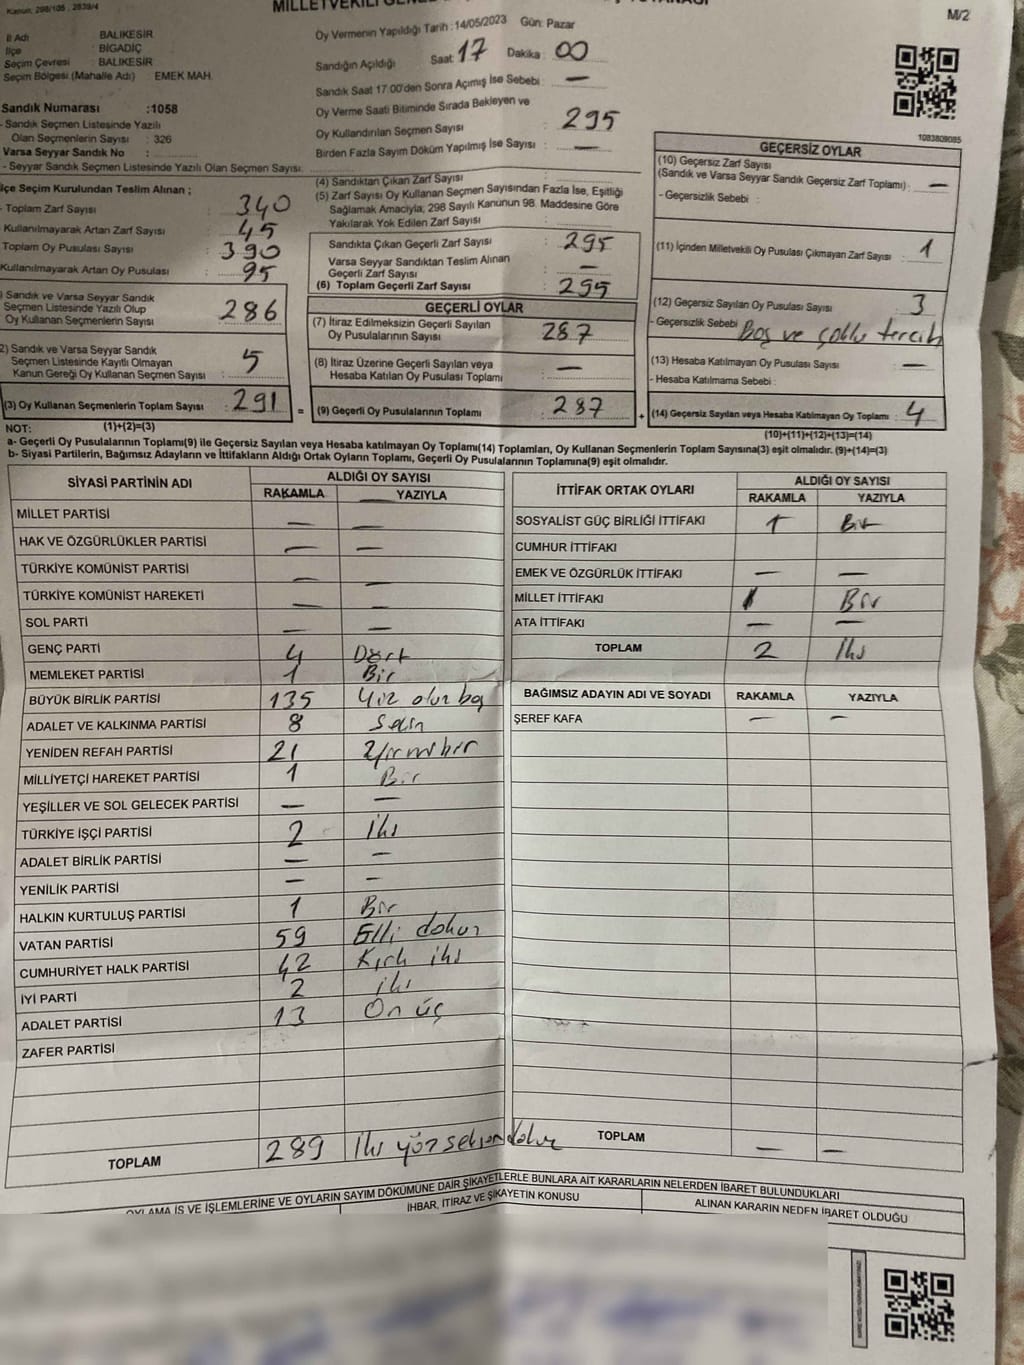 Kanun, 298/105 , 2839/4
M/2
İl Adı : BALIKESİR
İlçe : BİGADİÇ
Seçim Çevresi : BALIKESİR
Seçim Bölgesi (Mahalle Adı) : EMEK MAH.
Sandık Numarası :1058
- Sandık Seçmen Listesinde Yazılı
Olan Seçmenlerin Sayısı : 326
Varsa Seyyar Sandık No :
- Seyyar Sandık Seçmen Listesinde Yazılı Olan Seçmen Sayısı:
Oy Vermenin Yapıldığı Tarih : 14/05/2023 Gün: Pazar
Sandığın Açıldığı Saat: 17 Dakika : 00
Sandık Saat 17.00'den Sonra Açımış İse Sebebi : —
Oy Verme Saati Bitiminde Sırada Bekleyen ve
Oy Kullandırılan Seçmen Sayısı : 295
Birden Fazla Sayım Döküm Yapılmış İse Sayısı : —
1083809085
İlçe Seçim Kurulundan Teslim Alınan ;
- Toplam Zarf Sayısı : 340
Kullanılmayarak Artan Zarf Sayısı : 45
Toplam Oy Pusulası Sayısı : 390
Kullanılmayarak Artan Oy Pusulası : 95
) Sandık ve Varsa Seyyar Sandık
Seçmen Listesinde Yazılı Olup
Oy Kullanan Seçmenlerin Sayısı : 286
2) Sandık ve Varsa Seyyar Sandık
Seçmen Listesinde Kayıtlı Olmayan
Kanun Gereği Oy Kullanan Seçmen Sayısı : 5
(3) Oy Kullanan Seçmenlerin Toplam Sayısı : 291 =
(4) Sandıktan Çıkan Zarf Sayısı :
(5) Zarf Sayısı Oy Kullanan Seçmen Sayısından Fazla İse, Eşitliği
Sağlamak Amacıyla; 298 Sayılı Kanunun 98. Maddesine Göre
Yakılarak Yok Edilen Zarf Sayısı :
Sandıkta Çıkan Geçerli Zarf Sayısı : 295
Varsa Seyyar Sandıktan Teslim Alınan
Geçerli Zarf Sayısı : —
(6) Toplam Geçerli Zarf Sayısı : 295
GEÇERLİ OYLAR
(7) İtiraz Edilmeksizin Geçerli Sayılan
Oy Pusulalarının Sayısı : 287
(8) İtiraz Üzerine Geçerli Sayılan veya
Hesaba Katılan Oy Pusulası Toplamı : —
(9) Geçerli Oy Pusulalarının Toplamı : 287 +
GEÇERSİZ OYLAR
(10) Geçersiz Zarf Sayısı
(Sandık ve Varsa Seyyar Sandık Geçersiz Zarf Toplamı) : —
- Geçersizlik Sebebi :
(11) İçinden Milletvekili Oy Pusulası Çıkmayan Zarf Sayısı : 1
(12) Geçersiz Sayılan Oy Pusulası Sayısı : 3
- Geçersizlik Sebebi : Boş ve çoklu tercih
(13) Hesaba Katılmayan Oy Pusulası Sayısı : —
- Hesaba Katılmama Sebebi :
(14) Geçersiz Sayılan veya Hesaba Katılmayan Oy Toplamı : 4
NOT: (1)+(2)=(3)
(10)+(11)+(12)+(13)=(14)
a- Geçerli Oy Pusulalarının Toplamı(9) ile Geçersiz Sayılan veya Hesaba katılmayan Oy Toplamı(14) Toplamları, Oy Kullanan Seçmenlerin Toplam Sayısına(3) eşit olmalıdır. (9)+(14)=(3)
b- Siyasi Partilerin, Bağımsız Adayların ve İttifakların Aldığı Ortak Oyların Toplamı, Geçerli Oy Pusulalarının Toplamına(9) eşit olmalıdır.
SİYASİ PARTİNİN ADI
ALDIĞI OY SAYISI
RAKAMLA YAZIYLA
MİLLET PARTİSİ — —
HAK VE ÖZGÜRLÜKLER PARTİSİ — —
TÜRKİYE KOMÜNİST PARTİSİ — —
TÜRKİYE KOMÜNİST HAREKETİ — —
SOL PARTİ — —
GENÇ PARTİ 4 Dört
MEMLEKET PARTİSİ 1 Bir
BÜYÜK BİRLİK PARTİSİ 135 Yüz otuz beş
ADALET VE KALKINMA PARTİSİ 8 Sekiz
YENİDEN REFAH PARTİSİ 21 Yirmi bir
MİLLİYETÇİ HAREKET PARTİSİ 1 Bir
YEŞİLLER VE SOL GELECEK PARTİSİ — —
TÜRKİYE İŞÇİ PARTİSİ 2 iki
ADALET BİRLİK PARTİSİ — —
YENİLİK PARTİSİ — —
HALKIN KURTULUŞ PARTİSİ 1 Bir
VATAN PARTİSİ 59 Elli dokuz
CUMHURİYET HALK PARTİSİ 42 Kırk iki
İYİ PARTİ 2 iki
ADALET PARTİSİ 13 On üç
ZAFER PARTİSİ
TOPLAM 289 İki yüz seksen dokuz
İTTİFAK ORTAK OYLARI
ALDIĞI OY SAYISI
RAKAMLA YAZIYLA
SOSYALİST GÜÇ BİRLİĞİ İTTİFAKI 1 Bir
CUMHUR İTTİFAKI
EMEK VE ÖZGÜRLÜK İTTİFAKI — —
MİLLET İTTİFAKI 1 Bir
ATA İTTİFAKI — —
TOPLAM 2 İki
BAĞIMSIZ ADAYIN ADI VE SOYADI RAKAMLA YAZIYLA
ŞEREF KAFA — —
TOPLAM — —
OYLAMA İŞ VE İŞLEMLERİNE VE OYLARIN SAYIM DÖKÜMÜNE DAİR ŞİKAYETLERLE BUNLARA AİT KARARLARIN NELERDEN İBARET BULUNDUKLARI
İHBAR, İTİRAZ VE ŞİKAYETİN KONUSU
ALINAN KARARIN NEDEN İBARET OLDUĞU